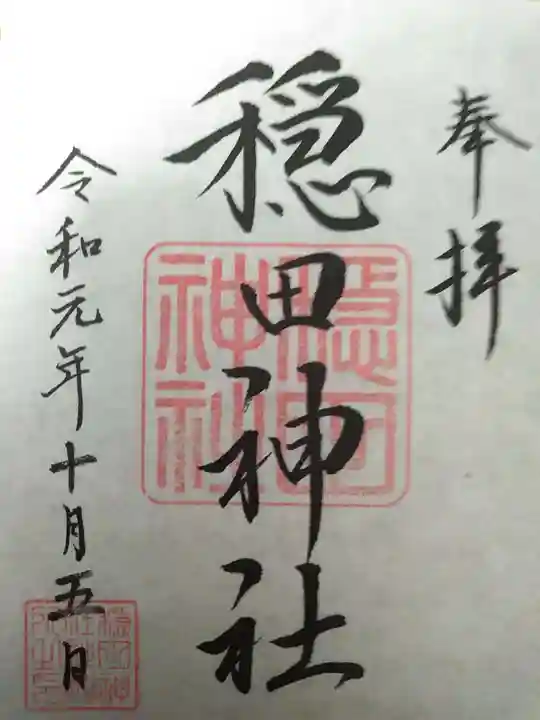 奉拝
穏田神社
令和元年十月五日
穏田
神社